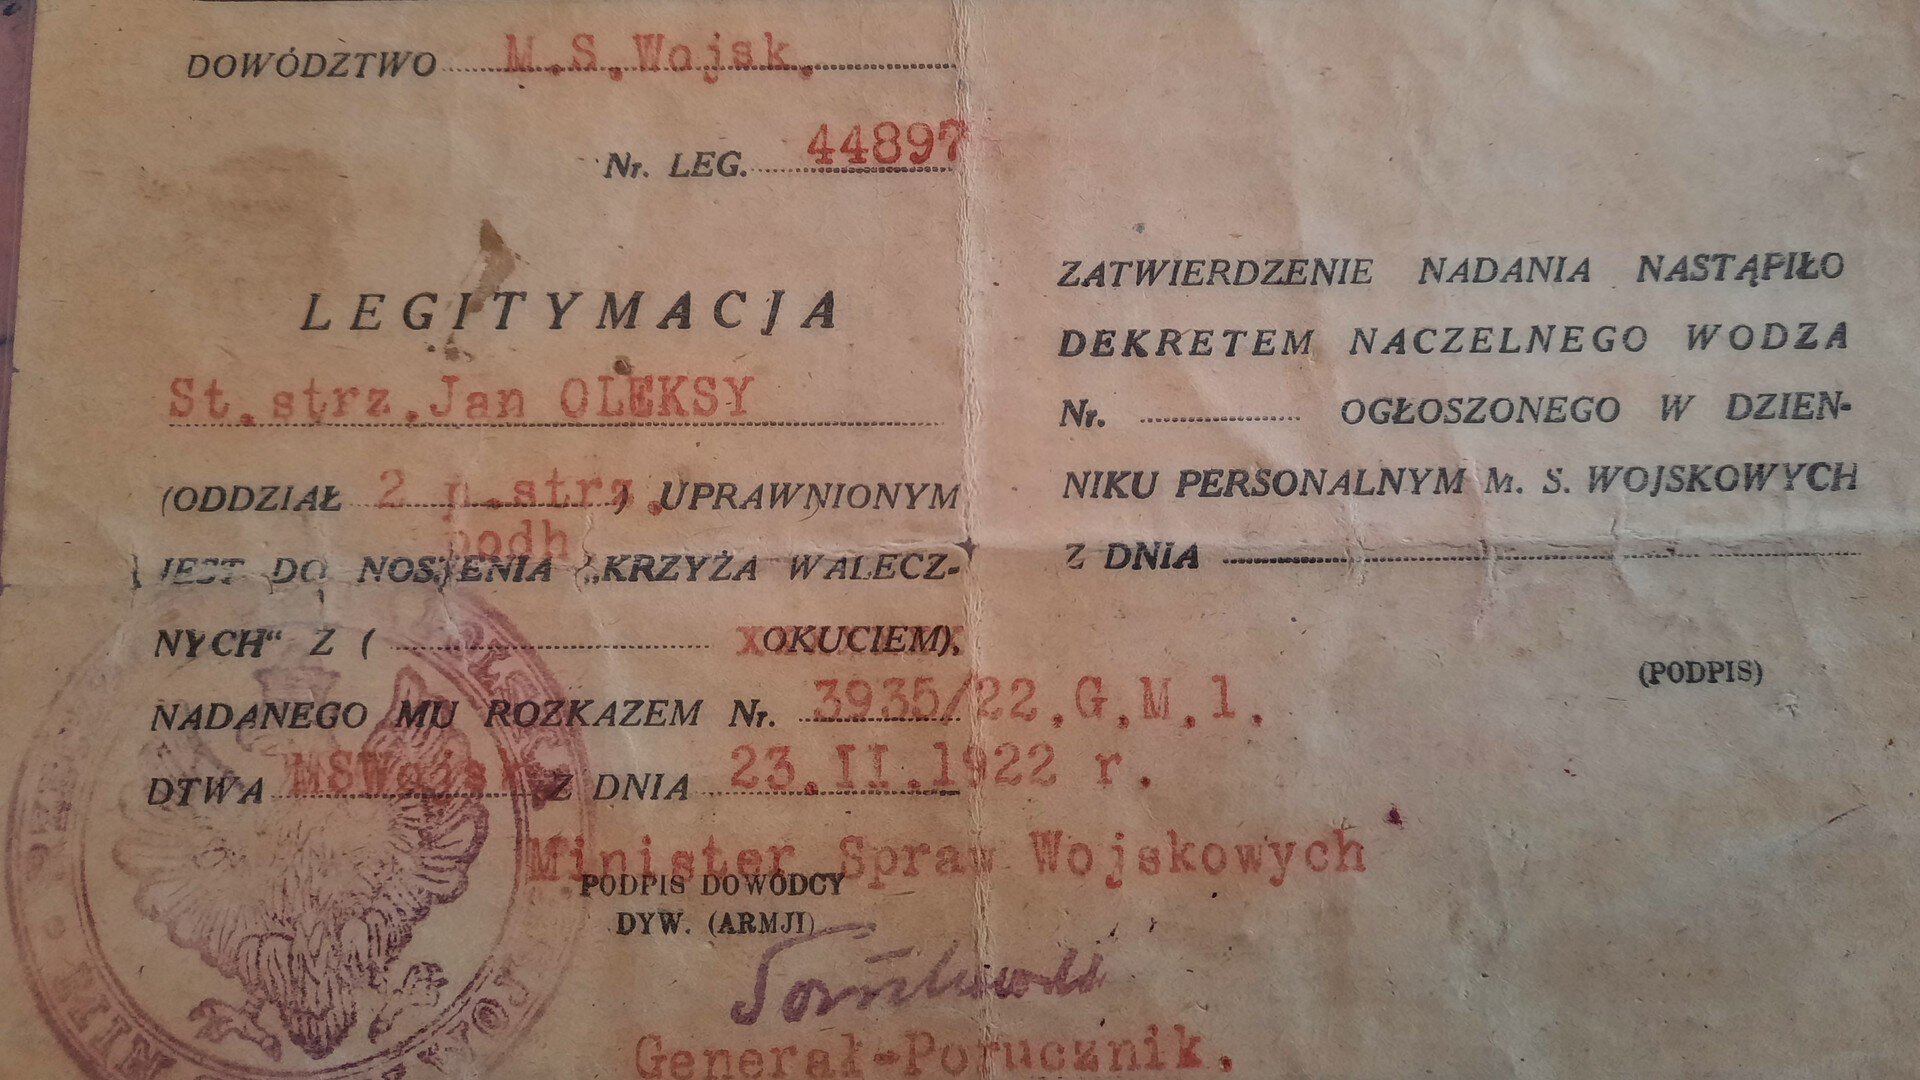 DOWÓDZTWO M.S.Wojsk.
Nr. LEG. 44897
LEGITYMACJA
St.strz.Jan OLEKSY
(ODDZIAŁ 2 p.strz.) UPRAWNIONYM
podh
JEST DO NOSZENIA „KRZYŻA WALECZ-
NYCH“ Z ( OKUCIEM).
NADANEGO MU ROZKAZEM Nr. 3935/22.G.M.1.
DTWA MSWojsk Z DNIA 23.II.1922 r.
Minister Spraw Wojskowych
PODPIS DOWÓDCY
DYW. (ARMJI)
Sosnkowski
Generał-Porucznik.
ZATWIERDZENIE NADANIA NASTĄPIŁO
DEKRETEM NACZELNEGO WODZA
Nr. OGŁOSZONEGO W DZIEN-
NIKU PERSONALNYM M. S. WOJSKOWYCH
Z DNIA
(PODPIS)